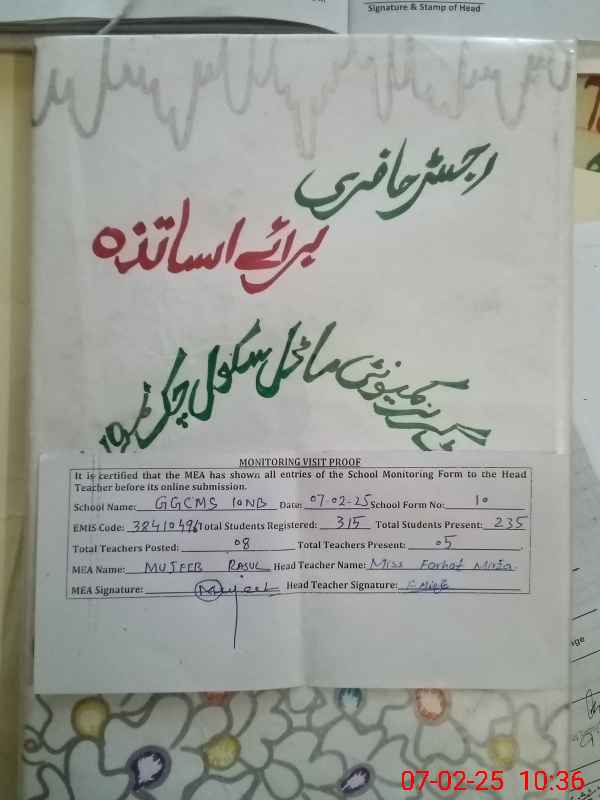 Signature & Stamp of Head
رجسٹر حاضری
برائے اساتذہ
گرلز کمیونٹی ماڈل سکول چک نمبر 10
MONITORING VISIT PROOF
It is certified that the MEA has shown all entries of the School Monitoring Form to the Head
Teacher before its online submission.
School Name: GGCMS 10NB Date: 07-02-25 School Form No: 10
EMIS Code: 38410496 Total Students Registered: 315 Total Students Present: 235
Total Teachers Posted: 08 Total Teachers Present: 05
MEA Name: MUJEEB RASUL Head Teacher Name: Miss Farhat Mirza
MEA Signature: Mujeeb Head Teacher Signature:
07-02-25 10:36